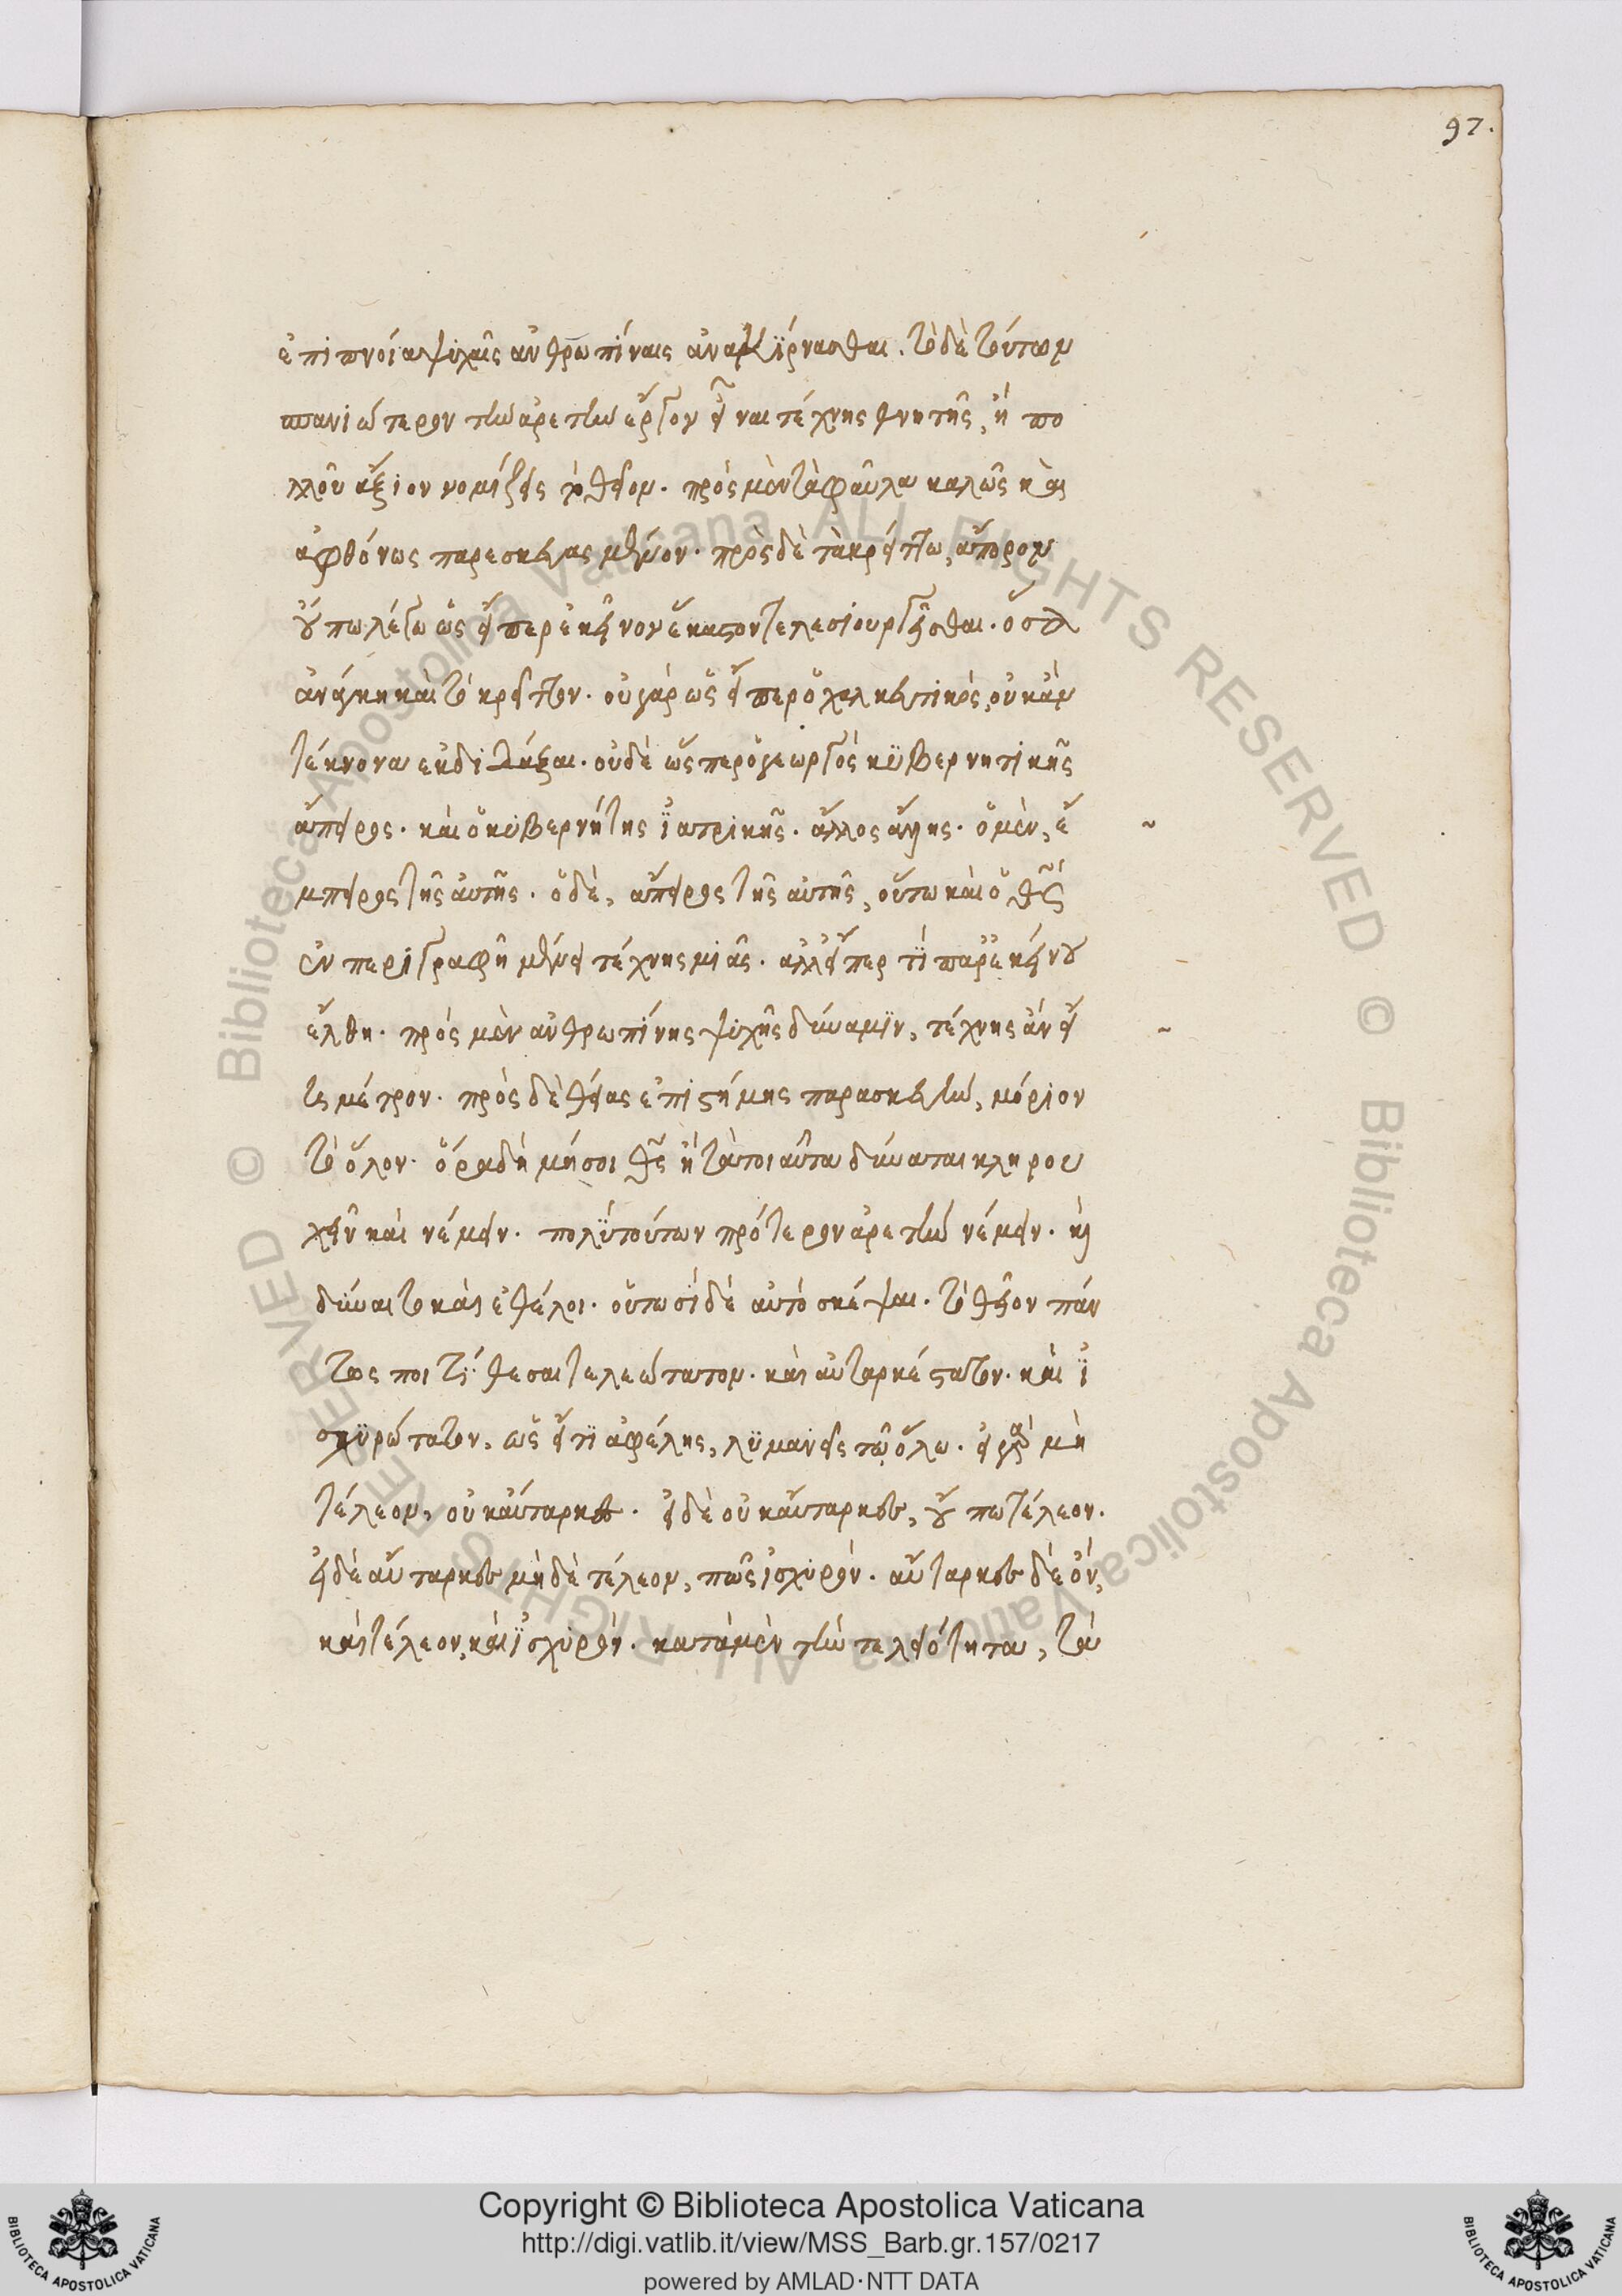 97.
ἐπιπνοία ψυχαῖς ἀνθρωπίναις ἀνακίρνασθαι. τὸ δὲ τούτων
σπανιώτερον τὴν ἀρετὴν ἔργον εἶναι τέχνης θνητῆς, ἢ πο
λλοῦ ἄξιον νομίζεις τὸ θεῖον. πρὸς μὲν τὰ φαῦλα καλῶς καὶ
ἀφθόνως παρεσκευασμένον. πρὸς δὲ τὰ κρείττω, ἄπορον
οὔπω λέγω ὡς εἴπερ ἐκεῖνον ἕκαστον τελεσιουργεῖσθαι.
ἀνάγκη καὶ τὸ κρεῖττον. οὐ γὰρ ὥσπερ ὁ χαλκευτικὸς, οὐκ ἂν
τέκνονα ἐκδιδάξαι. οὐδὲ ὥσπερ ὁ γεωργὸς κϋβερνητικῆς
ἄπειρος. καὶ ὁ κυβερνήτης ἰατρικῆς. ἄλλος ἄλλης. ὁ μὲν, ἔ
μπειρος τῆς αὐτῆς. ὁ δὲ, ἄπειρος τῆς αὐτῆς, οὕτω καὶ ὁ θεὸς
ἐν περιγραφῇ μένει τέχνης μιᾶς. ἀλλ' εἴπερ τὶ παρ' ἐκείνου
ἔλθη. πρὸς μὲν ἀνθρωπίνης ψυχῆς δύναμϊν, τέχνης ἂν εἴ
τις μέτρον. πρὸς δὲ θείας ἐπιστήμης παρασκευὴν, μόριον
τὸ ὅλον. ὅρα δὴ μή σοι θεὸς ἢ τὰ τοιαῦτα δύναται κληρου
χεῖν καὶ νέμειν. πολὺ τούτων πρότερον ἀρετὴν νέμειν. καὶ
δύναιτο καὶ ἐθέλοι. οὕτωσὶ δὲ αὐτὸ σκέψαι. τὸ θεῖον πάν
τως ποι τίθεσαι τελεώτατον. καὶ αὐταρκέστατον. καὶ ἰ
σχϋρώτατον, ὡς εἴ τι ἀφέλης, λϋμανεῖς τῷ ὅλῳ. εἰ γὰρ μὴ
τέλεον, οὐκ αὔταρκες. εἰ δὲ οὐκ αὔταρκες, οὔπω τέλεον.
εἰ δὲ αὔταρκες μὴ δὲ τέλεον, πῶς ἰσχυρόν. αὔταρκες δὲ ὂν,
καὶ τέλεον, καὶ ἰσχυρόν. κατὰ μὲν τὴν τελειότητα, τὰ
Copyright © Biblioteca Apostolica Vaticana
http://digi.vatlib.it/view/MSS_Barb.gr.157/0217
powered by AMLAD·NTT DATA